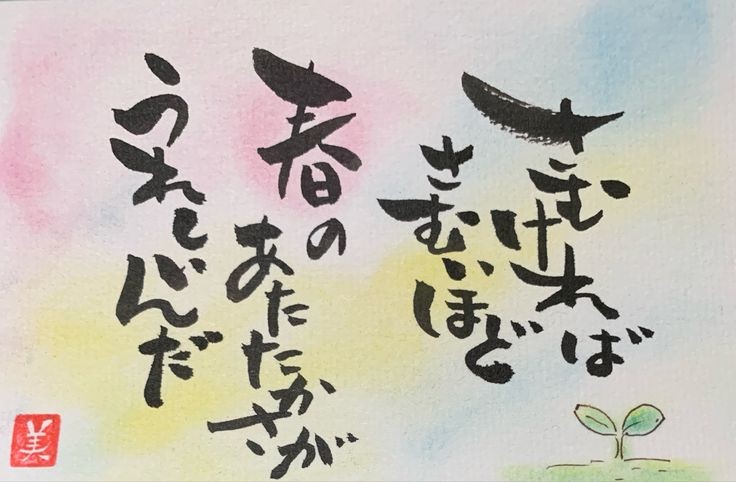 さむければ
さむいほど
春の
あたたかさが
うれしいんだ
美